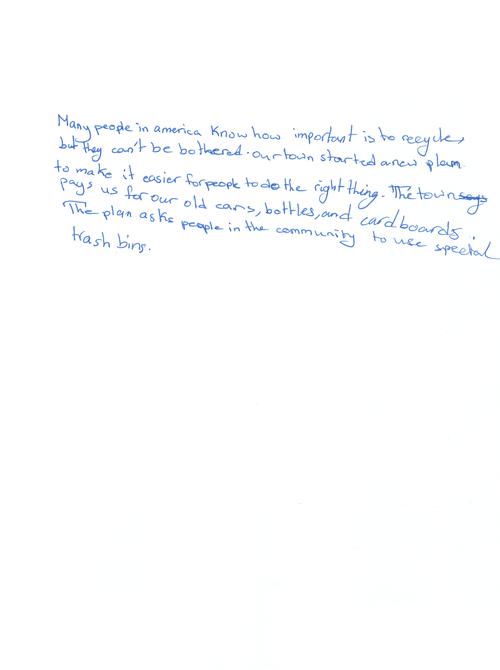 Many people in america Know how important is to recycle,
but they can't be bothered. our town started a new plan
to make it easier for people to do the right thing. The town says
pays us for our old cans, bottles, and cardboards.
The plan asks people in the community to use special
trash bins.